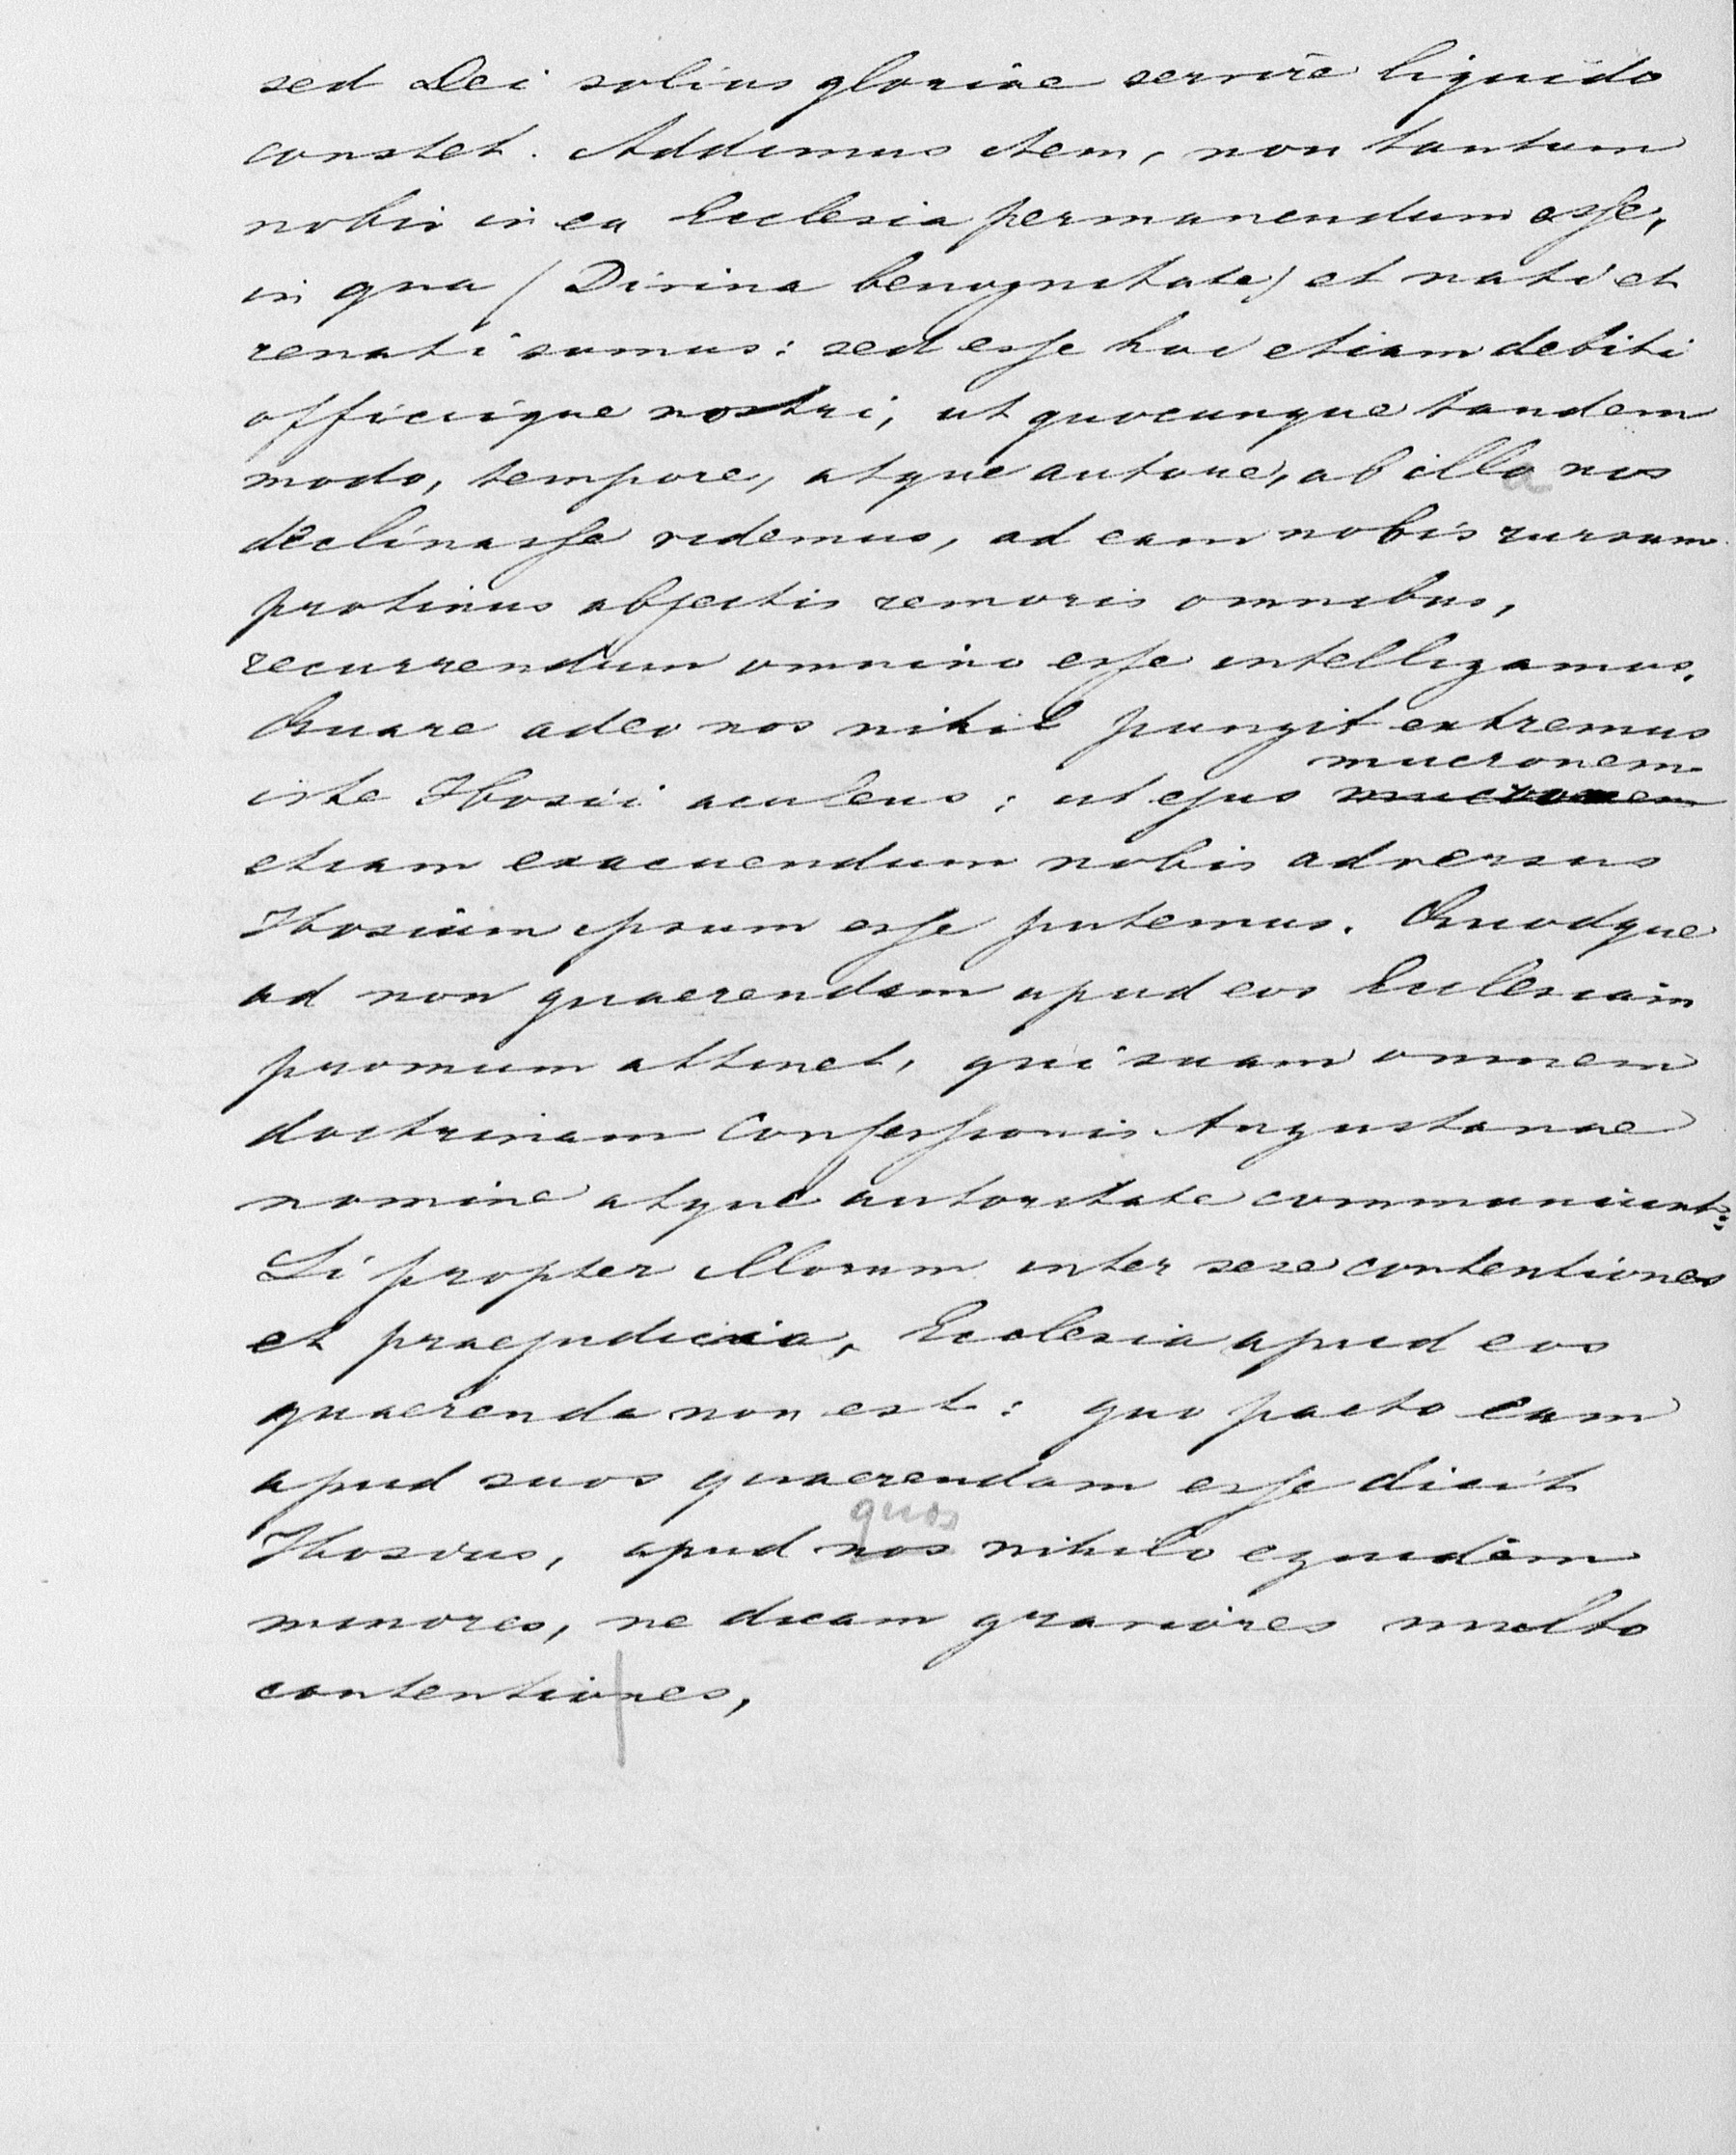 sed Dei solius gloriae servire liquido
constet. Addimus item, non tantum
nobis in ea Ecclesia permanendum esse,
in qua (Divina benignitate) et nati et
renati sumus: sed esse hoc etiam debiti
officiique nostri, ut quocunque tandem
modo, tempore, atque autore, ab illa nos
declinasse videmus, ad eam nobis rursum
protinus abjectis remoris omnibus,
recurrendum omnino esse intelligamus.
Quare adeo nos nihil pungit extremus
mucronem
iste Hosii aculeus: ut ejus mucronem
etiam exacuendum nobis adversus
Hosium ipsum esse putemus. Quodque
ad non quaerendam apud eos Ecclesiam
primum attinet, qui suam omnem
doctrinam Confessionis Augustanae
nomine atque autoritate communiunt:
Si propter illorum inter sese contentiones
et praejudicia, Ecclesia apud eos
quaerenda non est: quo pacto eam
apud suos quaerendam esse dicit
quos
Hosius, apud nos nihilo equidem
minores, ne dicam graviores multo
contentiones,